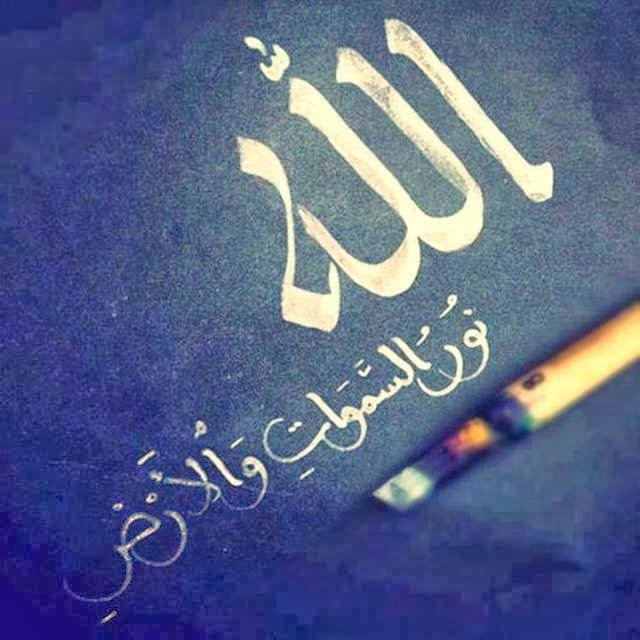 الله
نُورُ السَّمَوَاتِ وَالْأَرْضِ